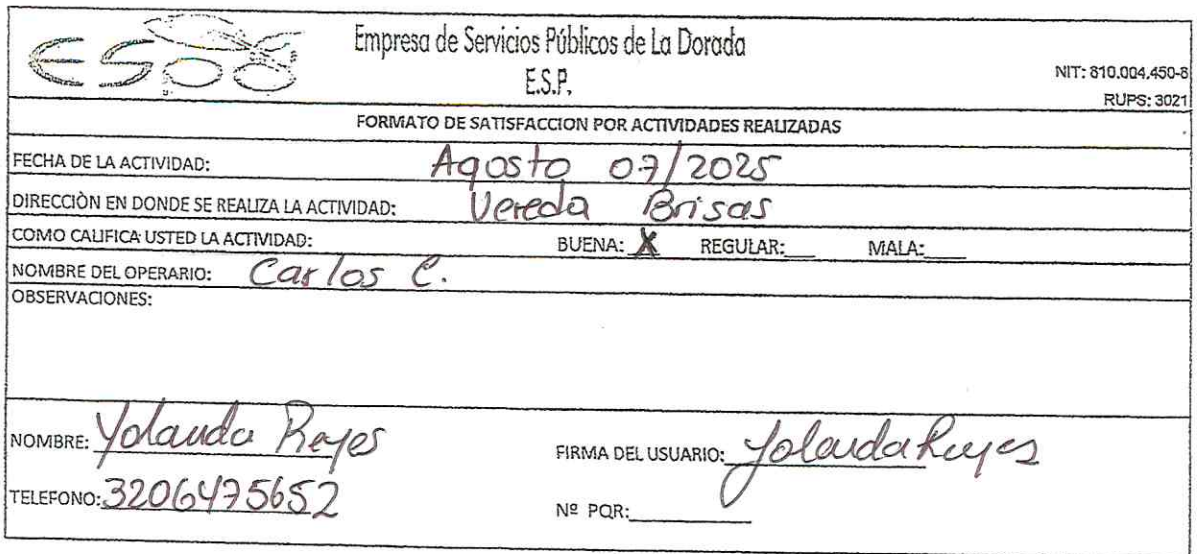 espd
Empresa de Servicios Públicos de La Dorada
E.S.P.
NIT: 810.004.450-8
RUPS: 3021
FORMATO DE SATISFACCION POR ACTIVIDADES REALIZADAS
FECHA DE LA ACTIVIDAD: Agosto 07/2025
DIRECCIÒN EN DONDE SE REALIZA LA ACTIVIDAD: Vereda Brisas
COMO CALIFICA USTED LA ACTIVIDAD: BUENA: X REGULAR:___ MALA:____
NOMBRE DEL OPERARIO: Carlos C.
OBSERVACIONES:
NOMBRE: Yolanda Reyes FIRMA DEL USUARIO: Yolanda Reyes
TELEFONO: 3206475652 Nº PQR:_________